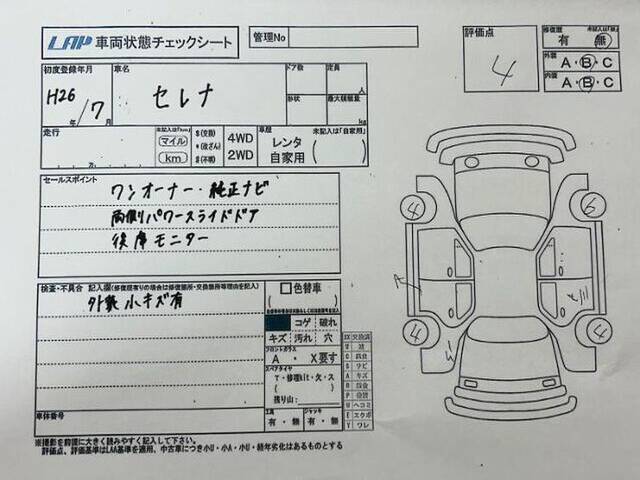 LAP 車両状態チェックシート
管理No
評価点
4
修復歴
有 ・ 無
外装
A・B・C
内装
A・B・C
初度登録年月
H26年/7月
車名
セレナ
ドア数
定員
人
形状
最大積載量
kg
走行
マイル
km
4WD
2WD
車歴
レンタ
自家用
セールスポイント
ワンオーナー・純正ナビ
両側パワースライドドア
後席モニター
検査・不具合 記入欄(修復歴有りの場合は修復箇所・交換箇所等理由を記入)
外装小キズ有
色替車
コゲ 破れ
キズ 汚れ 穴
フロントガラス
A ・ X要す
スペアタイヤ
T・修理kit・欠・ス
残り山:
工具
有・無
ジャッキ
有・無
車体番号
※撮影を前提に大きく読みやすく記入して下さい。
評価点、評価基準はLAA基準を適用、中古車につき小U・小A・小U・経年劣化はあるものとする
4
6
4
4